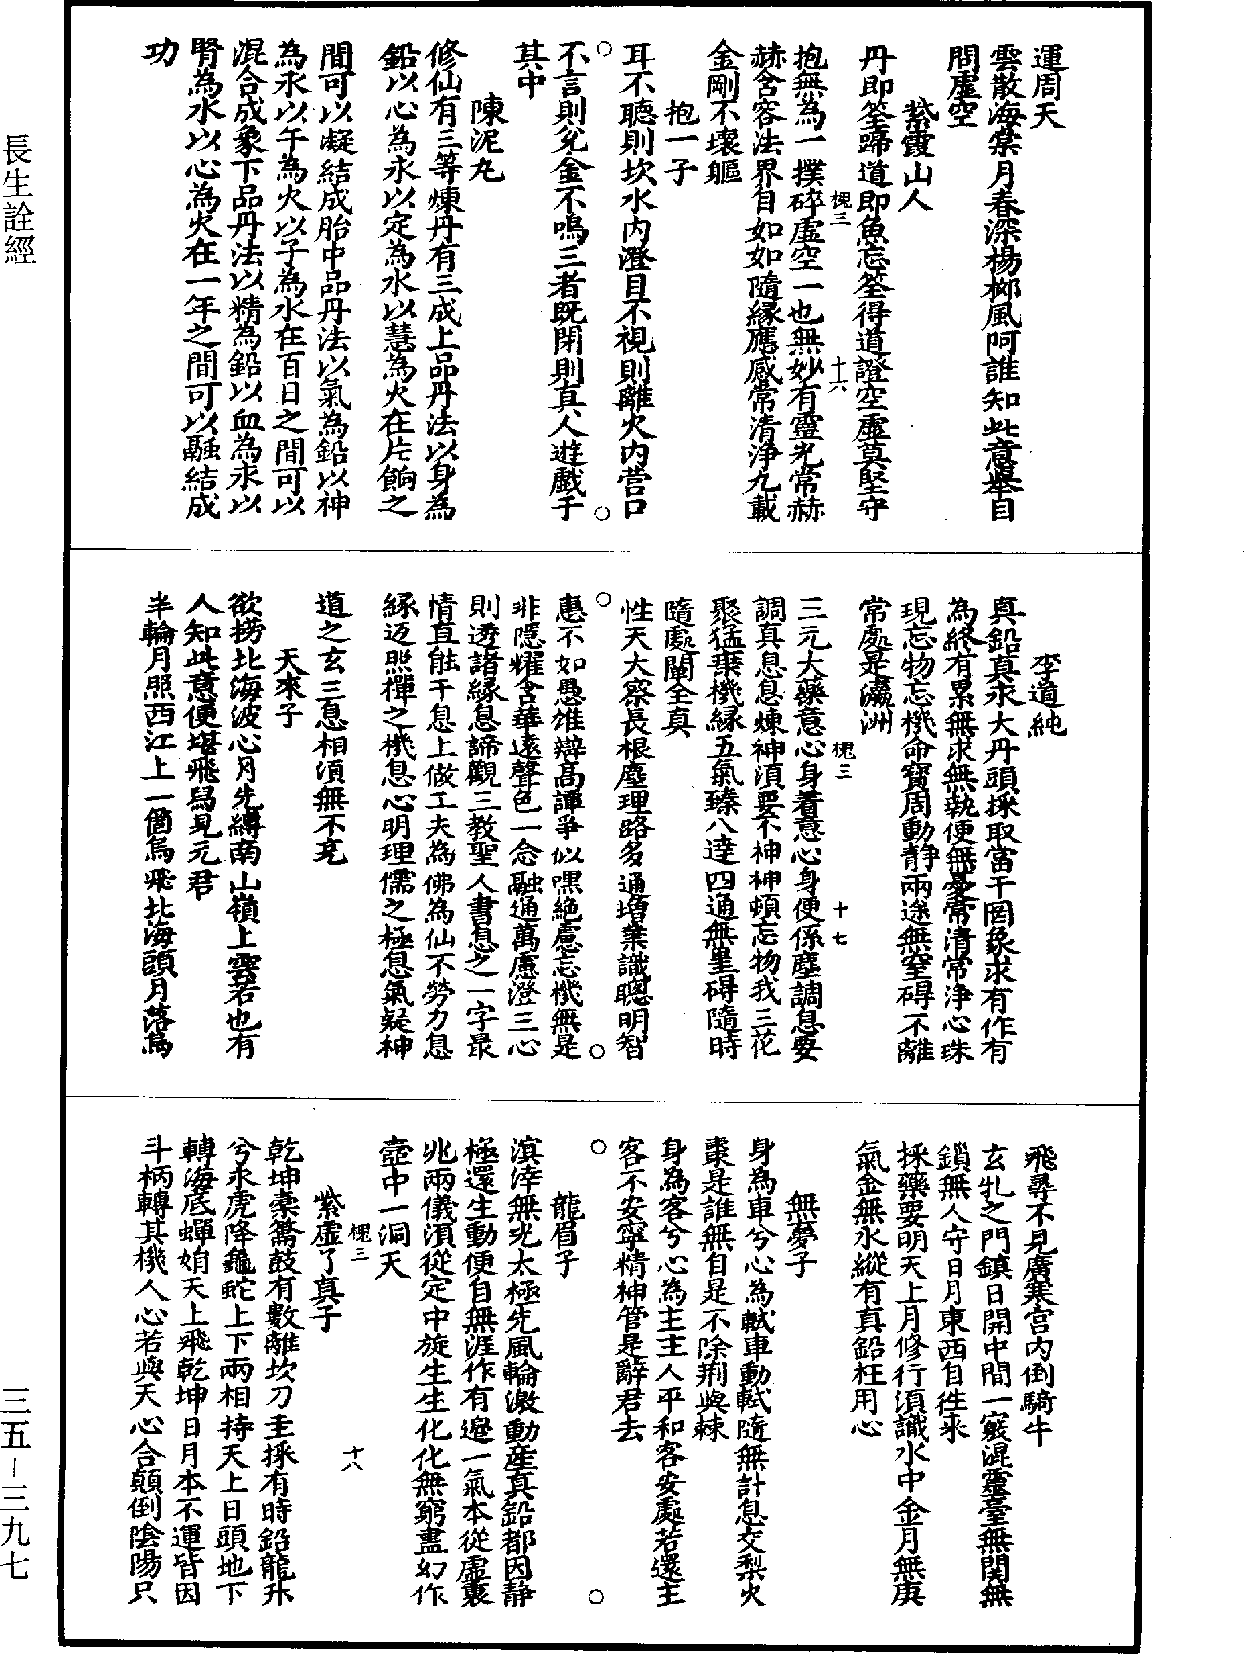 運周天
雲散海棠月春深楊柳風阿誰知此意舉目
問虛空
紫霞山人
丹即筌蹄道即魚忘筌得道證空虛莫堅守
抱無為一撲碎虛空一也無妙有靈光常赫
赫含容法界自如如隨緣應感常清淨九載
金剛不壞軀
抱一子
耳不聽則坎水內澄目不視則離火內营口
不言則兌金不鳴三者既閉則真人遊戲于
其中
陳泥丸
修仙有三等煉丹有三成上品丹法以身為
鉛以心為汞以定為水以慧為火在片餉之
間可以凝結成胎中品丹法以氣為鉛以神
為汞以午為火以子為水在百日之間可以
混合成象下品丹法以精為鉛以血為汞以
腎為水以心為火在一年之間可以融結成
功
槐三
十六
李道純
真鉛真汞大丹頭採取當干罔象求有作有
為終有累無求無執便無憂常清常淨心珠
現忘物忘機命寶周動靜兩途無窒碍不離
常處是瀛洲
三元大藥意心身着意心身便係塵調息要
調真息息煉神須要不神神頓忘物我三花
聚猛棄機緣五氣臻八達四通無罣碍隨時
隨處闡全真
性天大察長根塵理路多通增業識聰明智
惠不如愚雄辯高譚爭似嘿絶慮忘機無是
非隱耀含華遠聲色一念融通萬慮澄三心
則透諸緣息諦觀三教聖人書息之一字最
情直能干息上做工夫為佛為仙不勞力息
緣迈照禪之機息心明理儒之極息氣凝神
道之玄三息相須無不克
天來子
欲撈北海波心月先縛南山嶺上雲若也有
人知此意便堪飛舄見元君
半輪月照西江上一箇烏飛北海頭月落烏
槐三
十七
飛尋不見廣寒宮內倒騎牛
玄牝之門鎮日開中間一竅混靈臺無関無
鎖無人守日月東西自徃來
採藥要明天上月修行須識水中金月無庚
氣金無水縱有真鉛枉用心
無夢子
身為車兮心為軾車動軾隨無計息交梨火
棗是誰無自是不除荆與棘
身為客兮心為主主人平和客安處若還主
客不安寧精神管是辭君去
龍眉子
溟涬無光太極先風輪激動産真鉛都因靜
極還生動便自無涯作有邉一氣本從虛裏
兆兩儀須從定中旋生生化化無窮盡幻作
壺中一洞天
紫虛了真子
乾坤橐籥鼓有數離坎刀圭採有時鉛龍升
兮汞虎降龜蛇上下兩相持天上日頭地下
轉海底蟬娟天上飛乾坤日月本不運皆因
斗柄轉其機人心若與天心合顛倒陰陽只
槐三
十八
長生詮經
三五－三九七